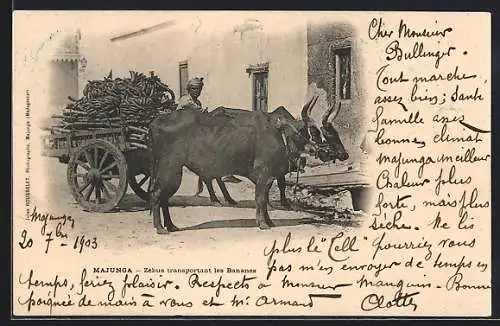 Cher Monsieur
Bullinger.
Tout marche,
assez bien; Santé
famille assez
bonne climat
majunga meilleur
Chaleur plus
forte, mais plus
sèche. Me lis
plus le "Cell" pourriez vous
pas m'en envoyer de temps en
temps, feriez plaisir. Respects à monsieur manquin - Bonne
poignée de main à vous et Mr. Armand
Majunga
20 7 1903
MAJUNGA - Zébus transportant les Bananes
Photographe, Majunga (Madagascar)